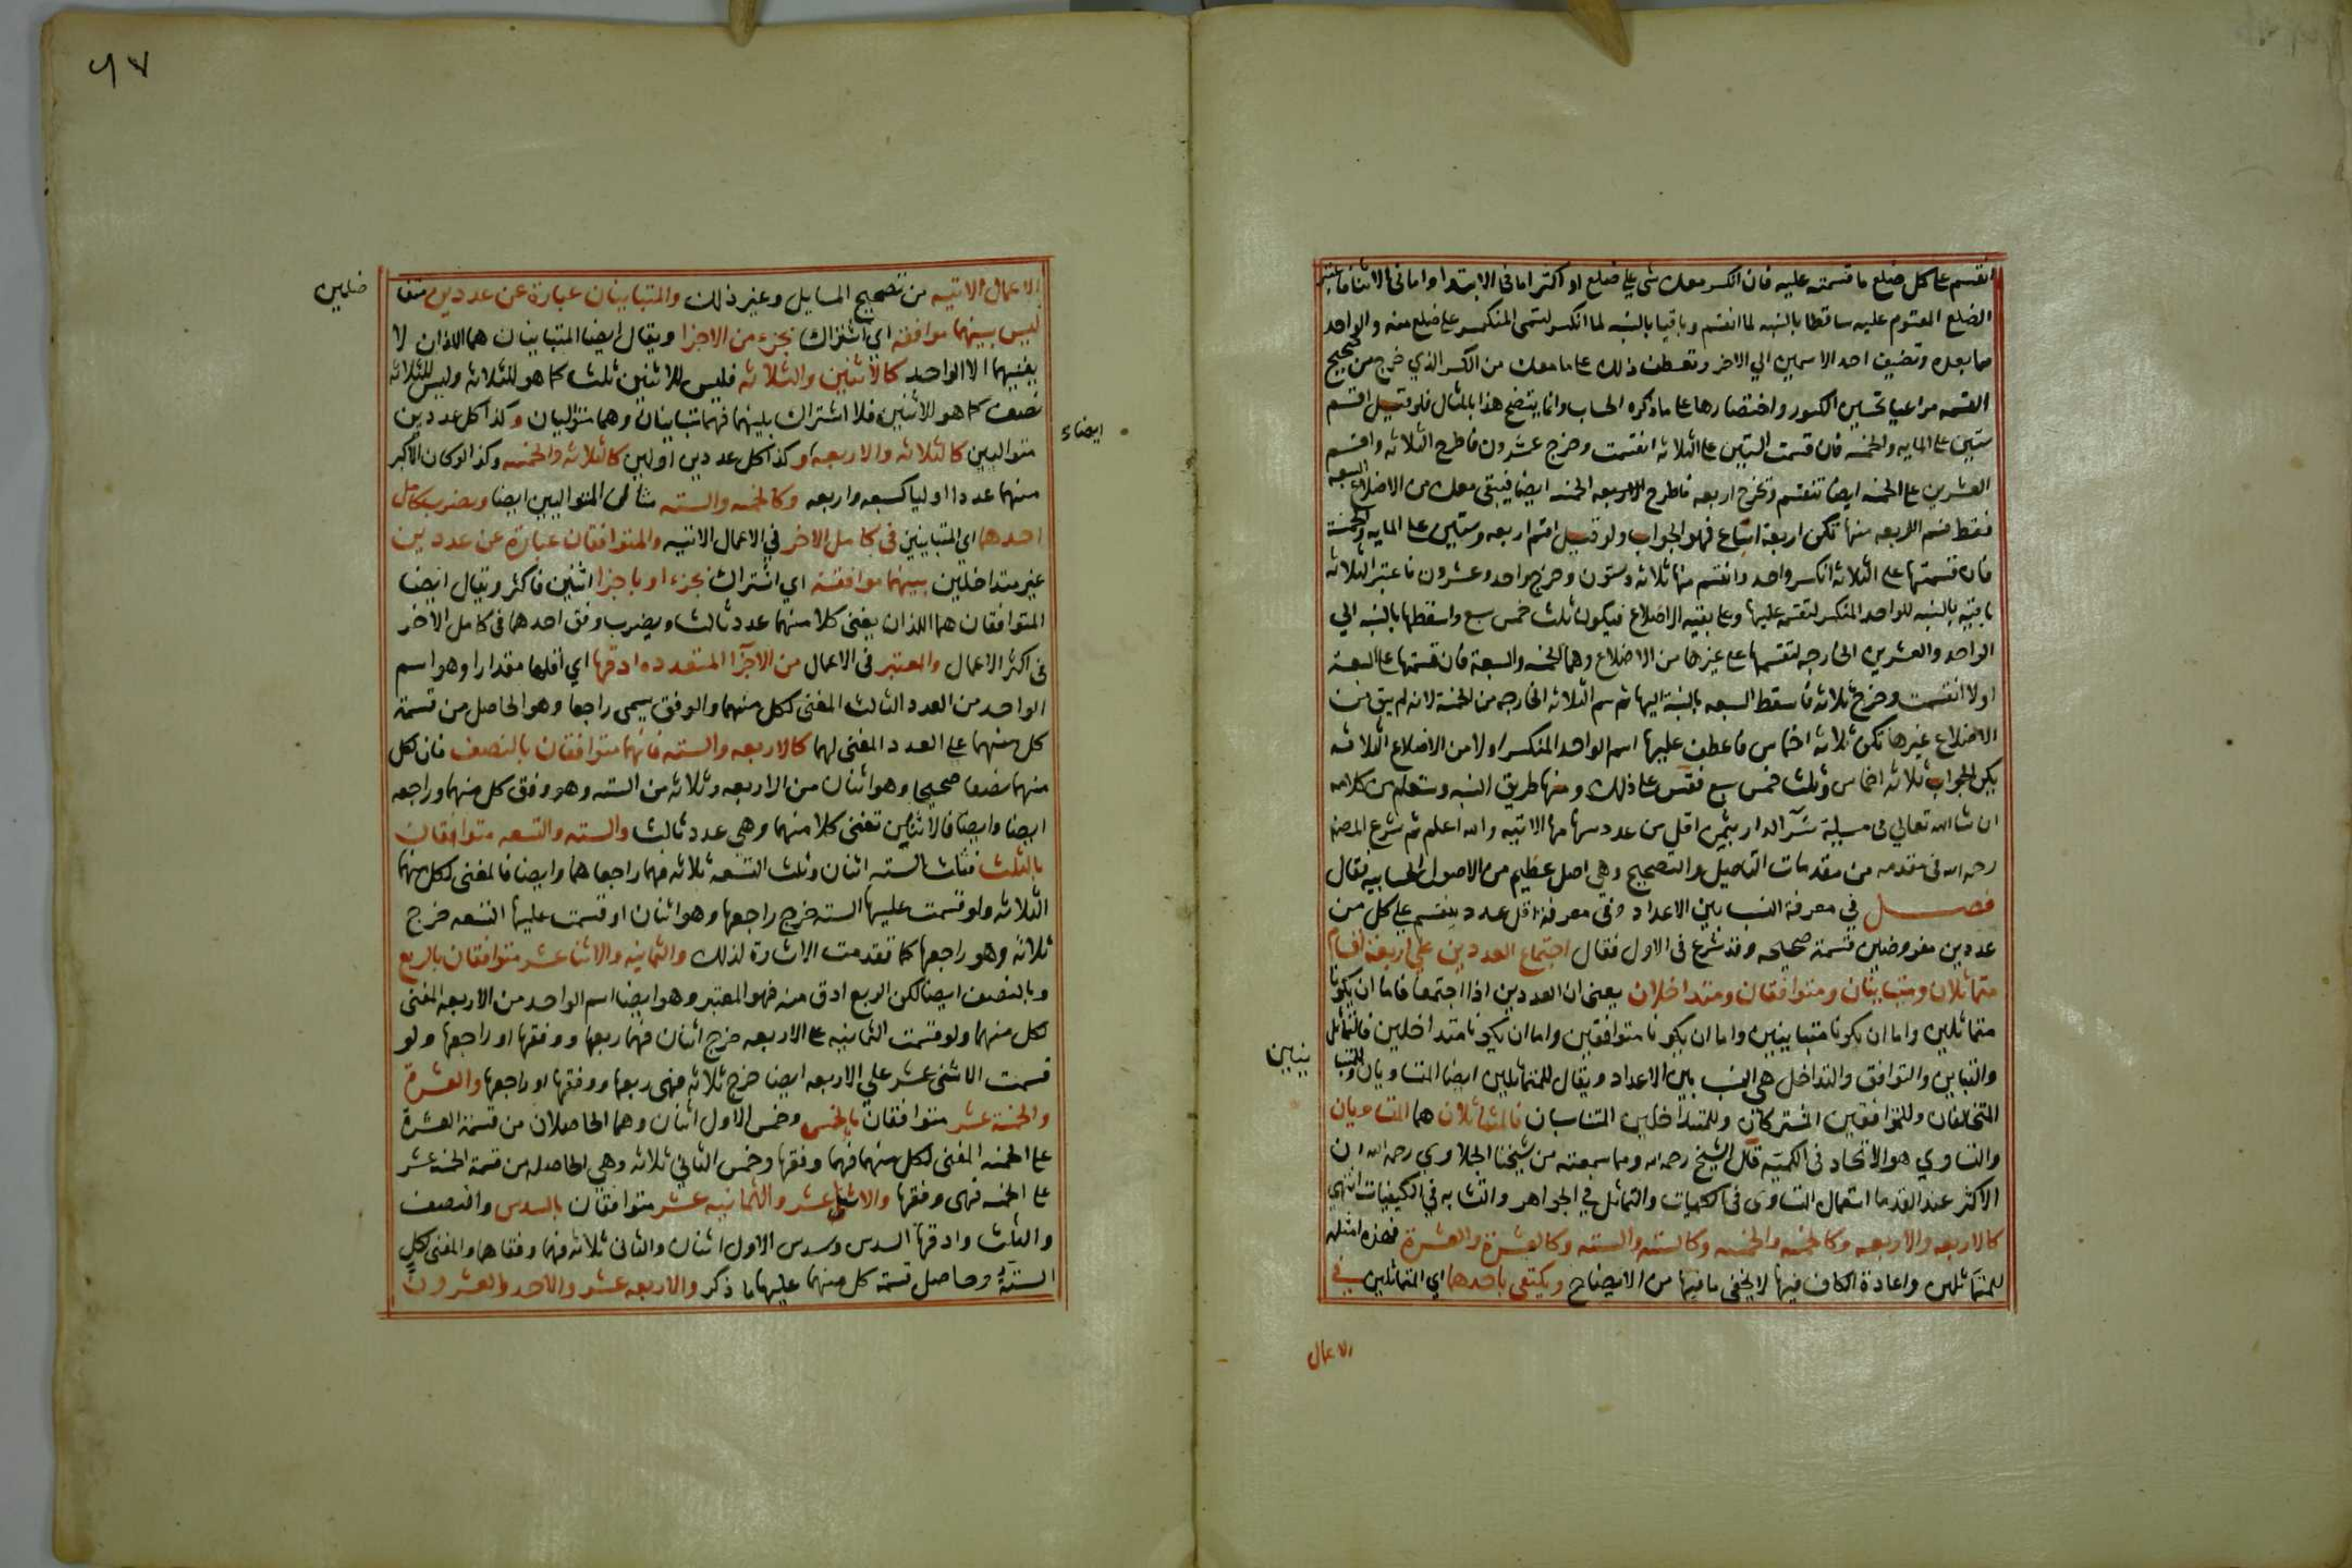 انقسم على كل ضلع ما قسمته عليه فان انكسر معك شي علي ضلع او اكثر اما في الابتدا واما في الاثنا فاعتبر
الضلع المقسوم عليه ساقطا بالنسبه لما انقسم وباقيا بالنسبه لما انكسر لتسمى المنكسر على ضلع منه والواحد
مما بعده وتضيف احد الاسمين الي الاخر وتعطف ذلك على ما معك من الكسر الذي خرج من صحيح
القسمه مراعيا تحسين الكسور واختصارها على ما ذكره الحساب وانما يتضح هذا بالمثال فلو قيل اقسم
ستين على المايه والخمسه فان قسمت الستين على الثلاثه انقسمت وخرج عشرون فاطرح الثلاثه واقسم
العشرين على الخمسه ايضا تنقسم وتخرج اربعه فاطرح الخمسه ايضا فيبقى معك من الاضلاع السبعه
فقط فسم الاربعه منها تكن اربعة اسباع فهو الجواب ولو قيل اقسم اربعه وستين على المايه والخمسة
فان قسمتها على الثلاثه انكسر واحد وانقسم منها ثلاثه وستون وخرج واحد وعشرون فاعتبر الثلاثه
باقيه بالنسبه للواحد المنكسر لتقسمه عليها وعلى بقيه الاضلاع فيكون ثلث خمس سبع واسقطها بالنسبه الي
الواحد والعشرين الخارجه لتقسمها على غيرها من الاضلاع وهما الخمسه والسبعة فان قسمتها على السبعة
اولا انقسمت وخرج ثلاثه فاسقط السبعه بالنسبة اليها ثم سم الثلاثه الخارجه من الخمسة لانه لم يبق من
الاضلاع غيرها تكن ثلاثه اخماس فاعطف عليها اسم الواحد المنكسر اولا من الاضلاع الثلاثه
يكن الجواب ثلاثه اخماس وثلث خمس سبع فقس على ذلك ومنها طريق النسبه وستعلم من كلامه
ان شا الله تعالى في مسيلة شرا الدار بثمن اقل من عدد سهامها الاتيه والله اعلم ثم شرع المصنف
رحمه الله في مقدمه من مقدمات التاصيل والتصحيح وهي اصل عظيم من الاصول الحسابيه فقال
فصل في معرفة النسب بين الاعداد وفي معرفة اقل عدد ينقسم على كل من
عددين مفروضين قسمة صحيحه وقد شرع في الاول فقال اجتماع العددين على اربعة اقسام
متماثلان ومتباينان ومتوافقان ومتداخلان يعني ان العددين اذا اجتمعا فاما ان يكونا
متماثلين واما ان يكونا متباينين واما ان يكونا متوافقين واما ان يكونا متداخلين فالتماثل
والتباين والتوافق والتداخل هي النسب بين الاعداد ويقال للمتماثلين ايضا المتساويان وللمتبا
ينين
المتخالفان وللمتوافقين المشتركان وللمتداخلين المتناسبان فالمتماثلان هما المتساويان
والتساوي هو الاتحاد في الكميه قال الشيخ رحمه الله ومما سمعته من شيخنا الجلاوي رحمه الله ان
الاكثر عند القدما استعمال التساوى في الكميات والتماثل في الجواهر والتشابه في الكيفيات انتهي
كالاربعه والاربعه وكالخمسه والخمسه وكالسته والسته وكالعشرة والعشرة فهذه امثله
للمتماثلين واعادة الكاف فيها لا يخفى ما فيها من الايضاح ويكتفى باحدهما اي المتماثلين في
الاعمال
٥٦٧
الاعمال الاتيه من تصحيح المسايل وغير ذلك والمتباينان عبارة عن عددين متفا
ضلين
ليس بينهما موافقه اي اشتراك بجزء من الاجزا ويقال ايضا المتباينان هما اللذان لا
يفنيهما الا الواحد كالاثنين والثلاثه فليس للاثنين ثلث كما هو للثلاثه وليس للثلاثه
نصف كما هو للاثنين فلا اشتراك بينهما فهما متباينان وهما متواليان وكذا كل عددين
ايضاء
متواليين كالثلاثه والاربعه وكذا كل عددين اوليين كالثلاثه والخمسه وكذا لو كان الاكبر
منهما عددا اوليا كسبعه واربعه وكالخمسه والسته مثال المتواليين ايضا ويضرب كامل
احدهما اي المتباينين في كامل الاخر في الاعمال الاتيه والمتوافقان عبارة عن عددين
غير متداخلين بينهما موافقة اي اشتراك بجزء او باجزا اثنين فاكثر ويقال ايضا
المتوافقان هما اللذان يفنى كلا منهما عدد ثالث ويضرب وفق احدهما في كامل الاخر
في اكثر الاعمال والمعتبر في الاعمال من الاجزا المتعدده ادقها اي اقلها مقدارا وهو اسم
الواحد من العدد الثالث المفنى لكل منهما والوفق يسمى راجعا وهو الحاصل من قسمة
كل منهما على العدد المفنى لهما كالاربعه والسته فانهما متوافقان بالنصف فان لكل
منهما نصفا صحيحا وهو اثنان من الاربعه وثلاثه من السته وهو وفق كل منهما وراجعه
ايضا وايضا فالاثنين تفنى كلا منهما وهي عدد ثالث والسته والتسعه متوافقان
بالثلث فثلث السته اثنان وثلث التسعه ثلاثه فهما راجعاهما وايضا فالمفنى لكل منهما
الثلاثه ولو قسمت عليها السته خرج راجعها وهو اثنان او قسمت عليها التسعه خرج
ثلاثه وهو راجعها كما تقدمت الاشارة لذلك والثمانيه والاثنا عشر متوافقان بالربع
وبالنصف ايضا لكن الربع ادق منه فهو المعتبر وهو ايضا اسم الواحد من الاربعه المفنى
لكل منهما ولو قسمت الثمانيه على الاربعه خرج اثنان فهما ربعها ووفقها او راجعها ولو
قسمت الاثنى عشر على الاربعه ايضا خرج ثلاثه فهى ربعها ووفقها او راجعها والعشرة
والخمسة عشر متوافقان بالخمس وخمس الاول اثنان وهما الحاصلان من قسمة العشرة
على الخمسه المفنى لكل منهما فهما وفقها وخمس الثاني ثلاثه وهي الحاصله من قسمة الخمسه عشر
على الخمسه فهى وفقها والاثنى عشر والثمانيه عشر متوافقان بالسدس والنصف
والثلث وادقها السدس وسدس الاول اثنان والثاني ثلاثه فهما وفقاهما والمفنى لكل
الستة وحاصل قسمة كل منهما عليها ما ذكر والاربعه عشر والاحد والعشرون